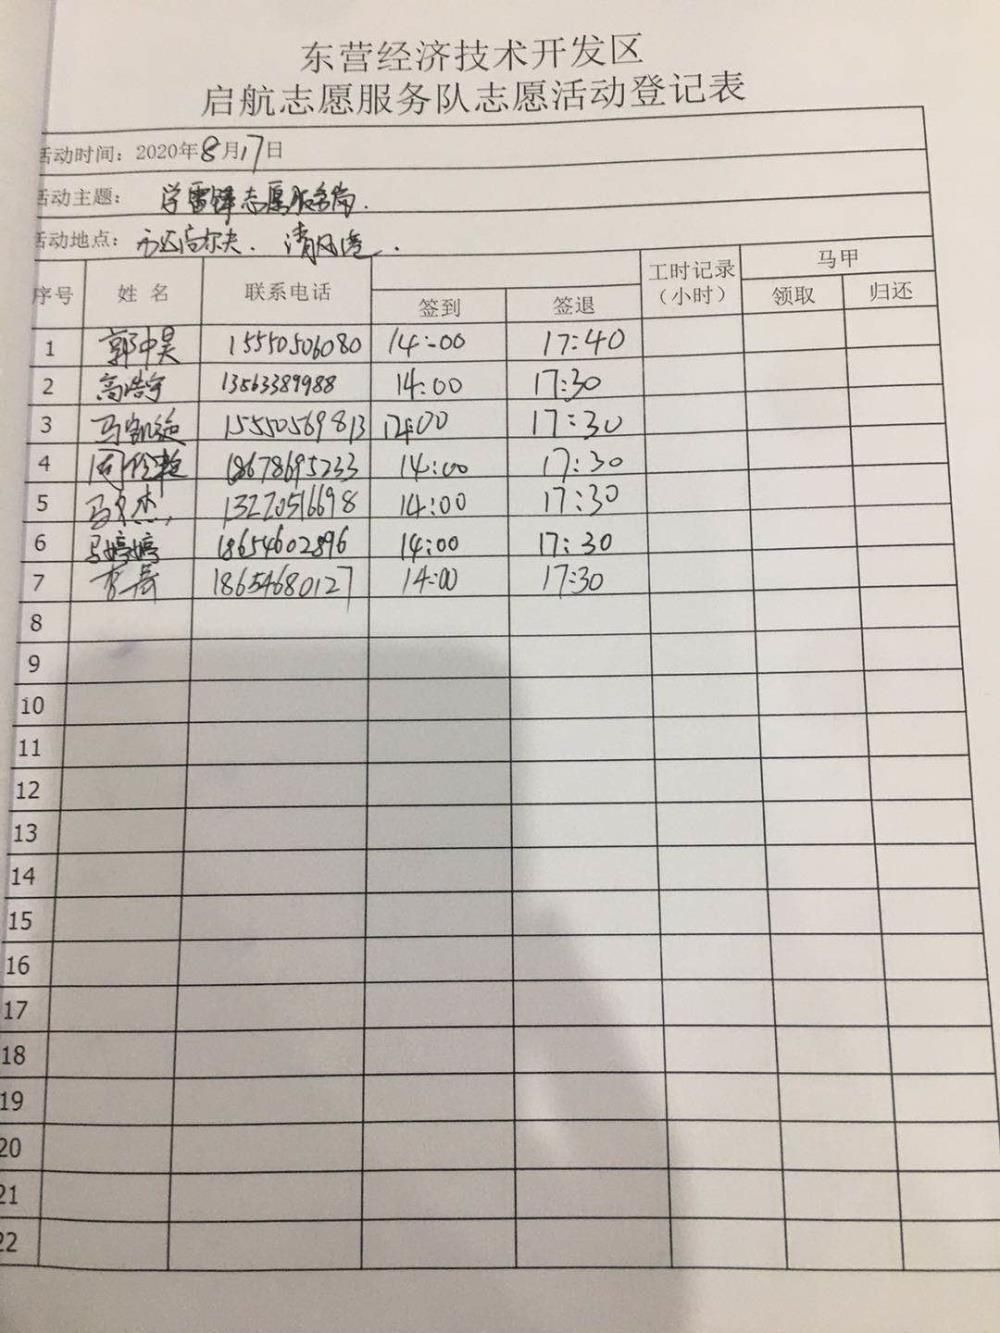 东营经济技术开发区
启航志愿服务队志愿活动登记表
活动时间：2020年8月17日
活动主题：学雷锋志愿服务岗.
活动地点：高尔夫.
序号 姓 名 联系电话 签到 签退 工时记录（小时） 马甲 领取 归还
1 郭中昊 15550506080 14:00 17:40
2 高浩宇 13563389988 14:00 17:30
3 马凯 15550569813 14:00 17:30
4 18678695233 14:00 17:30
5 马文杰 13220516698 14:00 17:30
6 马婷婷 18654602896 14:00 17:30
7 18654680127 14:00 17:30
8
9
10
11
12
13
14
15
16
17
18
19
20
21
22